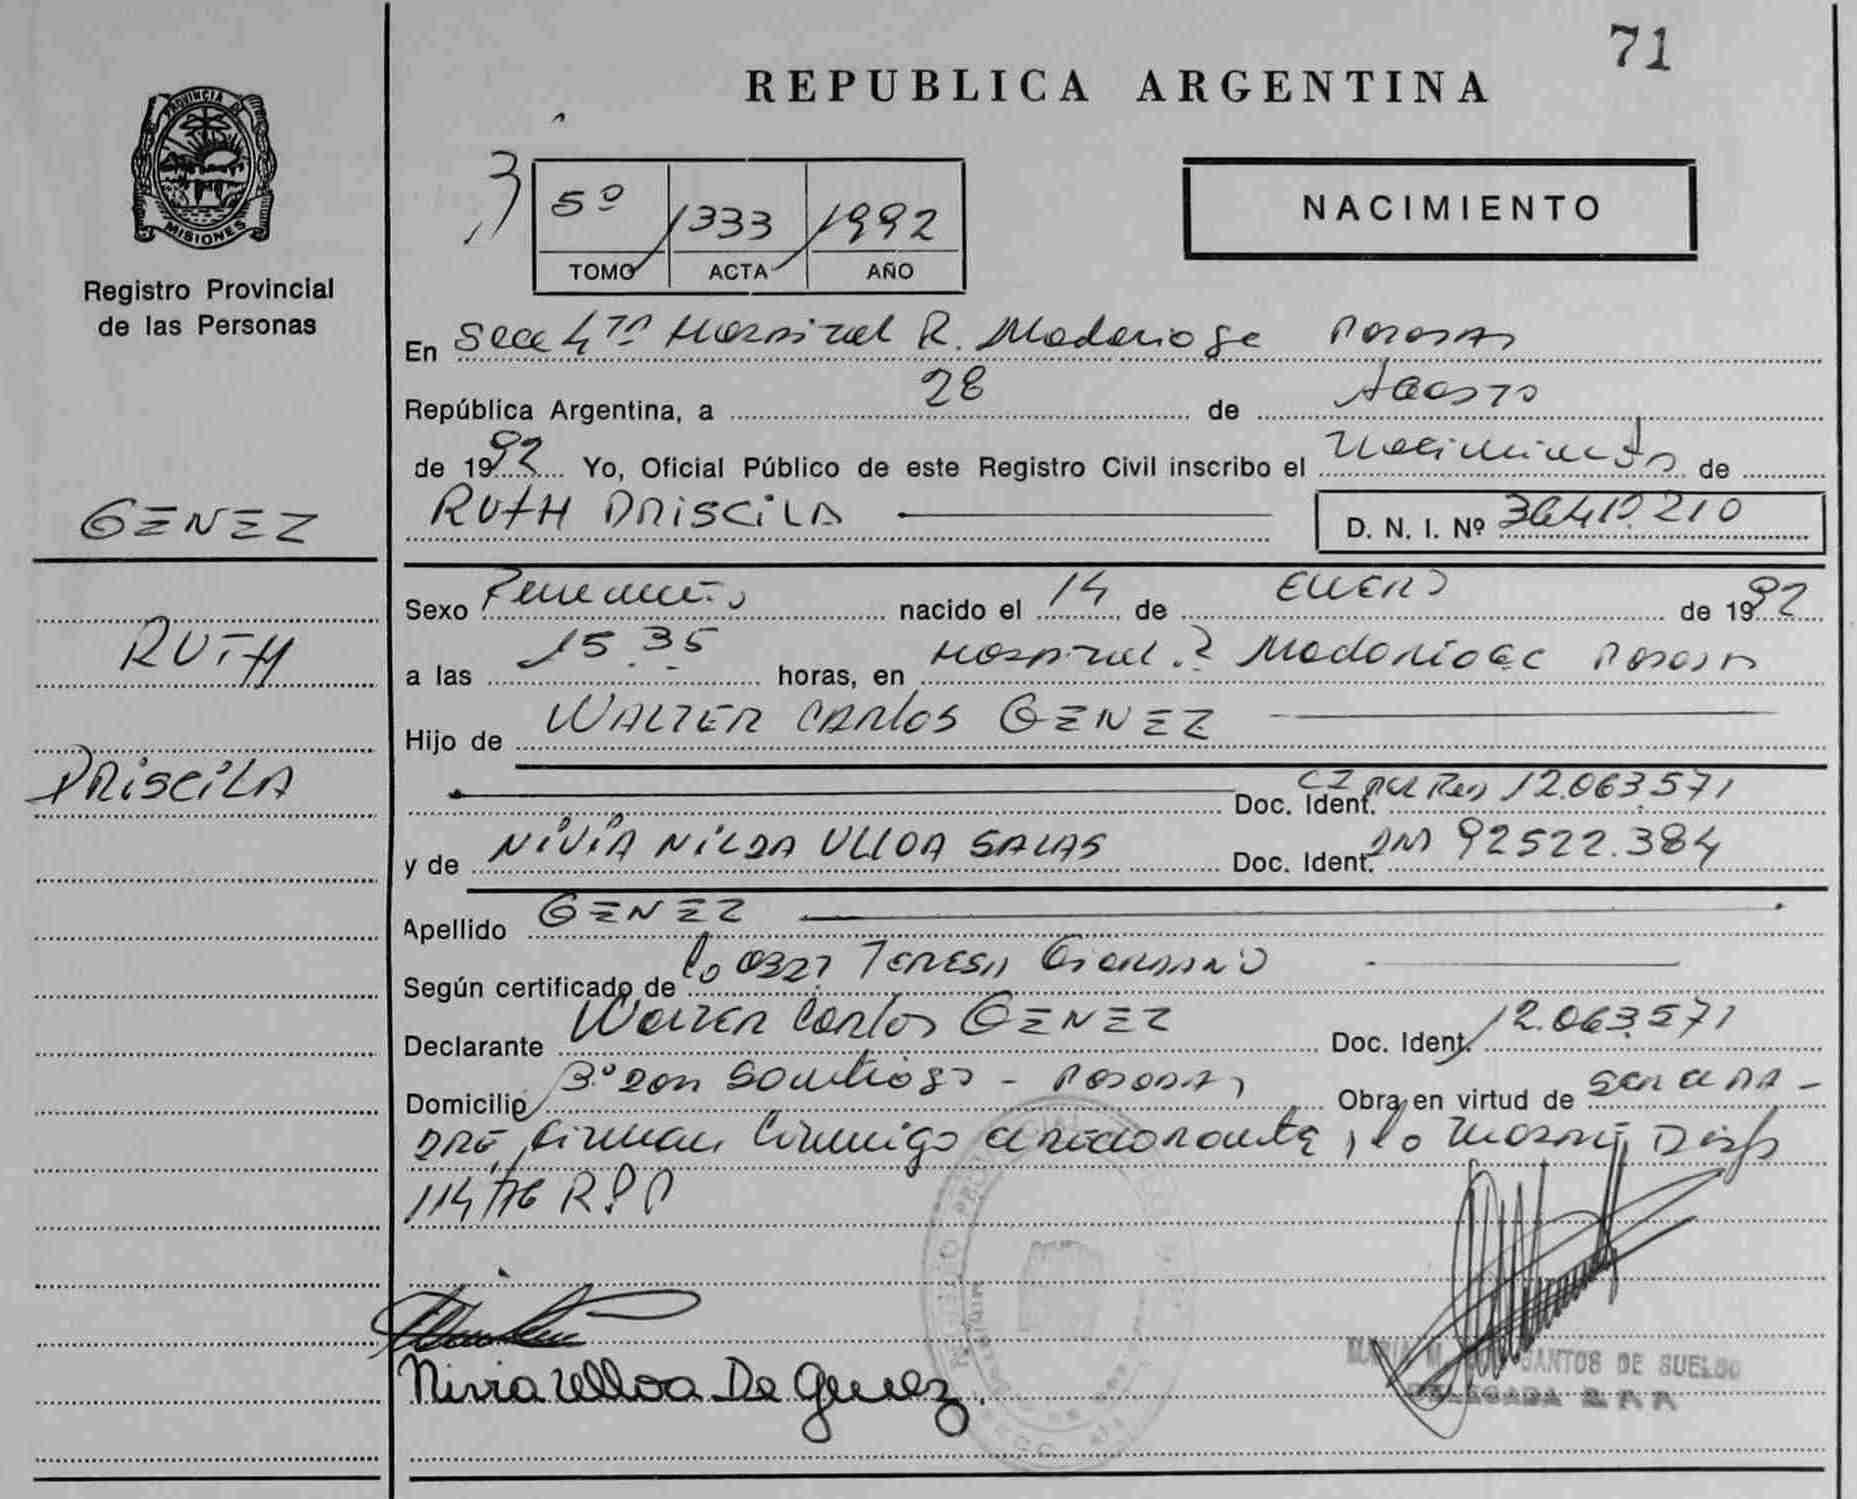 71
REPUBLICA ARGENTINA
PROVINCIA DE
MISIONES
Registro Provincial
de las Personas
5º 1333 1992
TOMO ACTA AÑO
NACIMIENTO
En Secc 4ta Hospital R. Madariaga Posadas
República Argentina, a 28 de Agosto
de 1992 Yo, Oficial Público de este Registro Civil inscribo el Nacimiento de
GENEZ
RUTH PRISCILA
D. N. I. Nº
Sexo Femenino nacido el 14 de ENERO de 1992
RUTH
a las 15.35 horas, en Hospital R Madariaga Posadas
Hijo de WALTER CARLOS GENEZ
PRISCILA
Doc. Ident. 12.063.571
y de NIVIA NILDA ULLOA SALAS Doc. Ident. DNI 92522.384
Apellido GENEZ
Según certificado de TERESA
Declarante Walter Carlos GENEZ Doc. Ident. 12.063.571
Domicilio Posadas Obra en virtud de ser el PA-
DRE, firman conmigo
114/76 R.P.P
Nivia Ulloa De Genez.
SANTOS DE SUELDO
DELEGADA R.P.P.